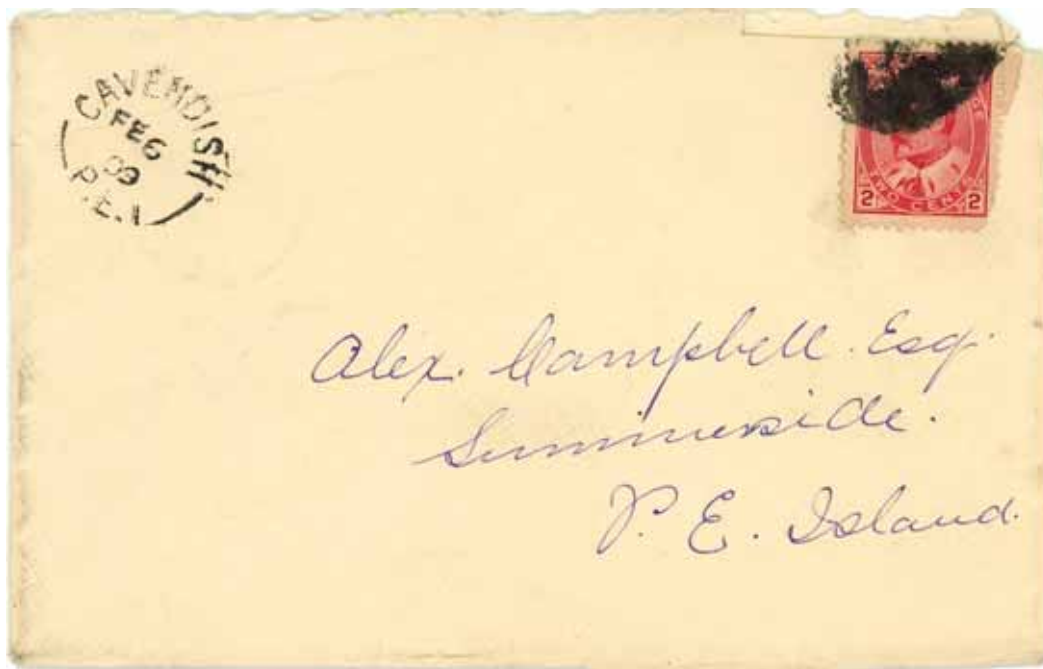 CAVENDISH
FE 6
09
P.E.I
TWO CENTS
2 2
Alex. Campbell. Esq.
Summerside.
P. E. Island.